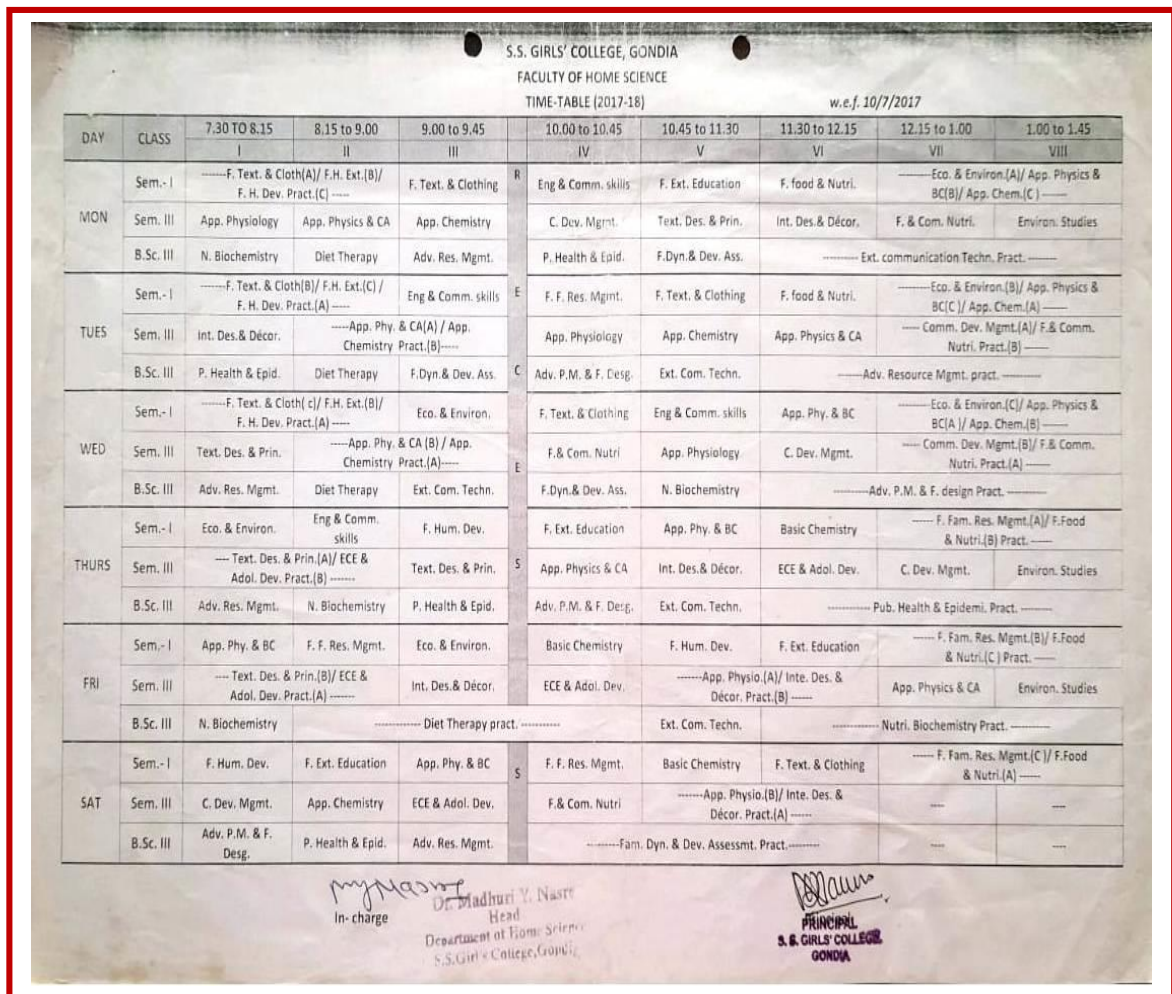 S.S. GIRLS' COLLEGE, GONDIA
FACULTY OF HOME SCIENCE
TIME-TABLE (2017-18) w.e.f. 10/7/2017
DAY CLASS 7.30 TO 8.15 8.15 to 9.00 9.00 to 9.45 10.00 to 10.45 10.45 to 11.30 11.30 to 12.15 12.15 to 1.00 1.00 to 1.45
I II III IV V VI VII VIII
MON Sem.- I ------F. Text. & Cloth(A)/ F.H. Ext.(B)/ F. H. Dev. Pract.(C) ----- F. Text. & Clothing R Eng & Comm. skills F. Ext. Education F. food & Nutri. --------Eco. & Environ.(A)/ App. Physics & BC(B)/ App. Chem.(C ) -------
Sem. III App. Physiology App. Physics & CA App. Chemistry C. Dev. Mgmt. Text. Des. & Prin. Int. Des.& Décor. F. & Com. Nutri. Environ. Studies
B.Sc. III N. Biochemistry Diet Therapy Adv. Res. Mgmt. P. Health & Epid. F.Dyn.& Dev. Ass. ---------- Ext. communication Techn. Pract. --------
TUES Sem.- I ------F. Text. & Cloth(B)/ F.H. Ext.(C) / F. H. Dev. Pract.(A) ----- Eng & Comm. skills E F. F. Res. Mgmt. F. Text. & Clothing F. food & Nutri. --------Eco. & Environ.(B)/ App. Physics & BC(C )/ App. Chem.(A) ------
Sem. III Int. Des.& Décor. -----App. Phy. & CA(A) / App. Chemistry Pract.(B)----- App. Physiology App. Chemistry App. Physics & CA ---- Comm. Dev. Mgmt.(A)/ F.& Comm. Nutri. Pract.(B) -------
B.Sc. III P. Health & Epid. Diet Therapy F.Dyn.& Dev. Ass. C Adv. P.M. & F. Desg. Ext. Com. Techn. ------Adv. Resource Mgmt. pract. -----------
WED Sem.- I ------F. Text. & Cloth( c)/ F.H. Ext.(B)/ F. H. Dev. Pract.(A) ----- Eco. & Environ. F. Text. & Clothing Eng & Comm. skills App. Phy. & BC --------Eco. & Environ.(C)/ App. Physics & BC(A )/ App. Chem.(B) ------
Sem. III Text. Des. & Prin. -----App. Phy. & CA (B) / App. Chemistry Pract.(A)----- E F.& Com. Nutri App. Physiology C. Dev. Mgmt. ---- Comm. Dev. Mgmt.(B)/ F.& Comm. Nutri. Pract.(A) -------
B.Sc. III Adv. Res. Mgmt. Diet Therapy Ext. Com. Techn. F.Dyn.& Dev. Ass. N. Biochemistry ---------Adv. P.M. & F. design Pract. -----------
THURS Sem.- I Eco. & Environ. Eng & Comm. skills F. Hum. Dev. F. Ext. Education App. Phy. & BC Basic Chemistry ------ F. Fam. Res. Mgmt.(A)/ F.Food & Nutri.(B) Pract. ------
Sem. III ---- Text. Des. & Prin.(A)/ ECE & Adol. Dev. Pract.(B) ------- Text. Des. & Prin. S App. Physics & CA Int. Des.& Décor. ECE & Adol. Dev. C. Dev. Mgmt. Environ. Studies
B.Sc. III Adv. Res. Mgmt. N. Biochemistry P. Health & Epid. Adv. P.M. & F. Desg. Ext. Com. Techn. ---------- Pub. Health & Epidemi. Pract. --------
FRI Sem.- I App. Phy. & BC F. F. Res. Mgmt. Eco. & Environ. Basic Chemistry F. Hum. Dev. F. Ext. Education ------ F. Fam. Res. Mgmt.(B)/ F.Food & Nutri.(C ) Pract. -----
Sem. III ---- Text. Des. & Prin.(B)/ ECE & Adol. Dev. Pract.(A) ------- Int. Des.& Décor. ECE & Adol. Dev. -------App. Physio.(A)/ Inte. Des. & Décor. Pract.(B) ------ App. Physics & CA Environ. Studies
B.Sc. III N. Biochemistry ------------ Diet Therapy pract. ---------- Ext. Com. Techn. ------------ Nutri. Biochemistry Pract. ----------
SAT Sem.- I F. Hum. Dev. F. Ext. Education App. Phy. & BC S F. F. Res. Mgmt. Basic Chemistry F. Text. & Clothing ------ F. Fam. Res. Mgmt.(C )/ F.Food & Nutri.(A) ------
Sem. III C. Dev. Mgmt. App. Chemistry ECE & Adol. Dev. F.& Com. Nutri -------App. Physio.(B)/ Inte. Des. & Décor. Pract.(A) ------ ---- ----
B.Sc. III Adv. P.M. & F. Desg. P. Health & Epid. Adv. Res. Mgmt. ---------Fam. Dyn. & Dev. Assessmt. Pract.--------- ---- ----
In- charge
Dr. Madhuri Y. Nasre
Head
Department of Home Science
S.S.Girl's College, Gondia
PRINCIPAL
S. S. GIRLS' COLLEGE,
GONDIA